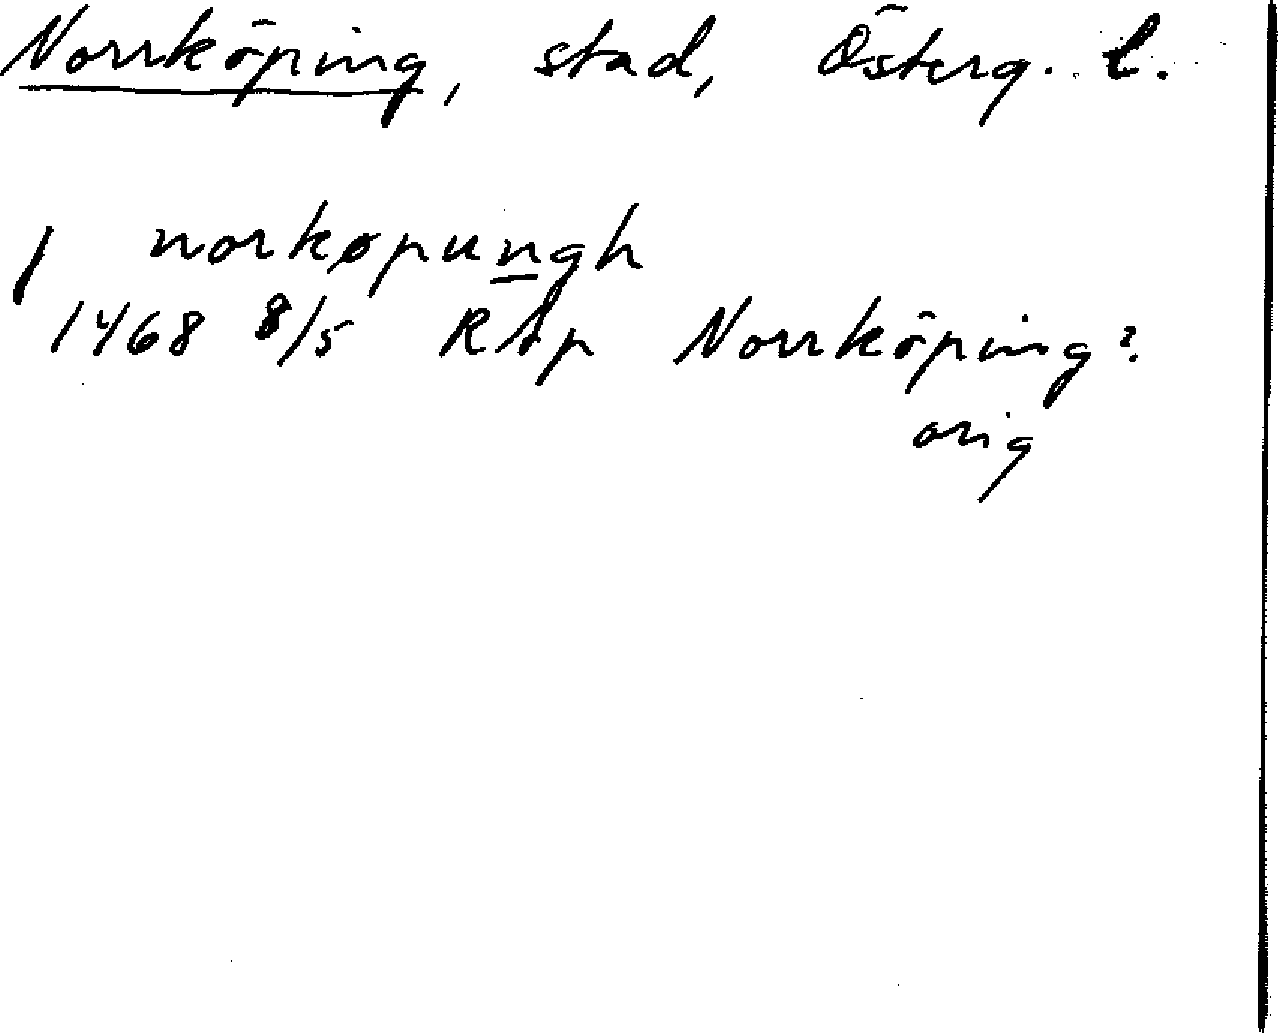 Norrköping, stad, Österg. l.
norkøpungh
1468 8/5 RAp Norrköping?
orig